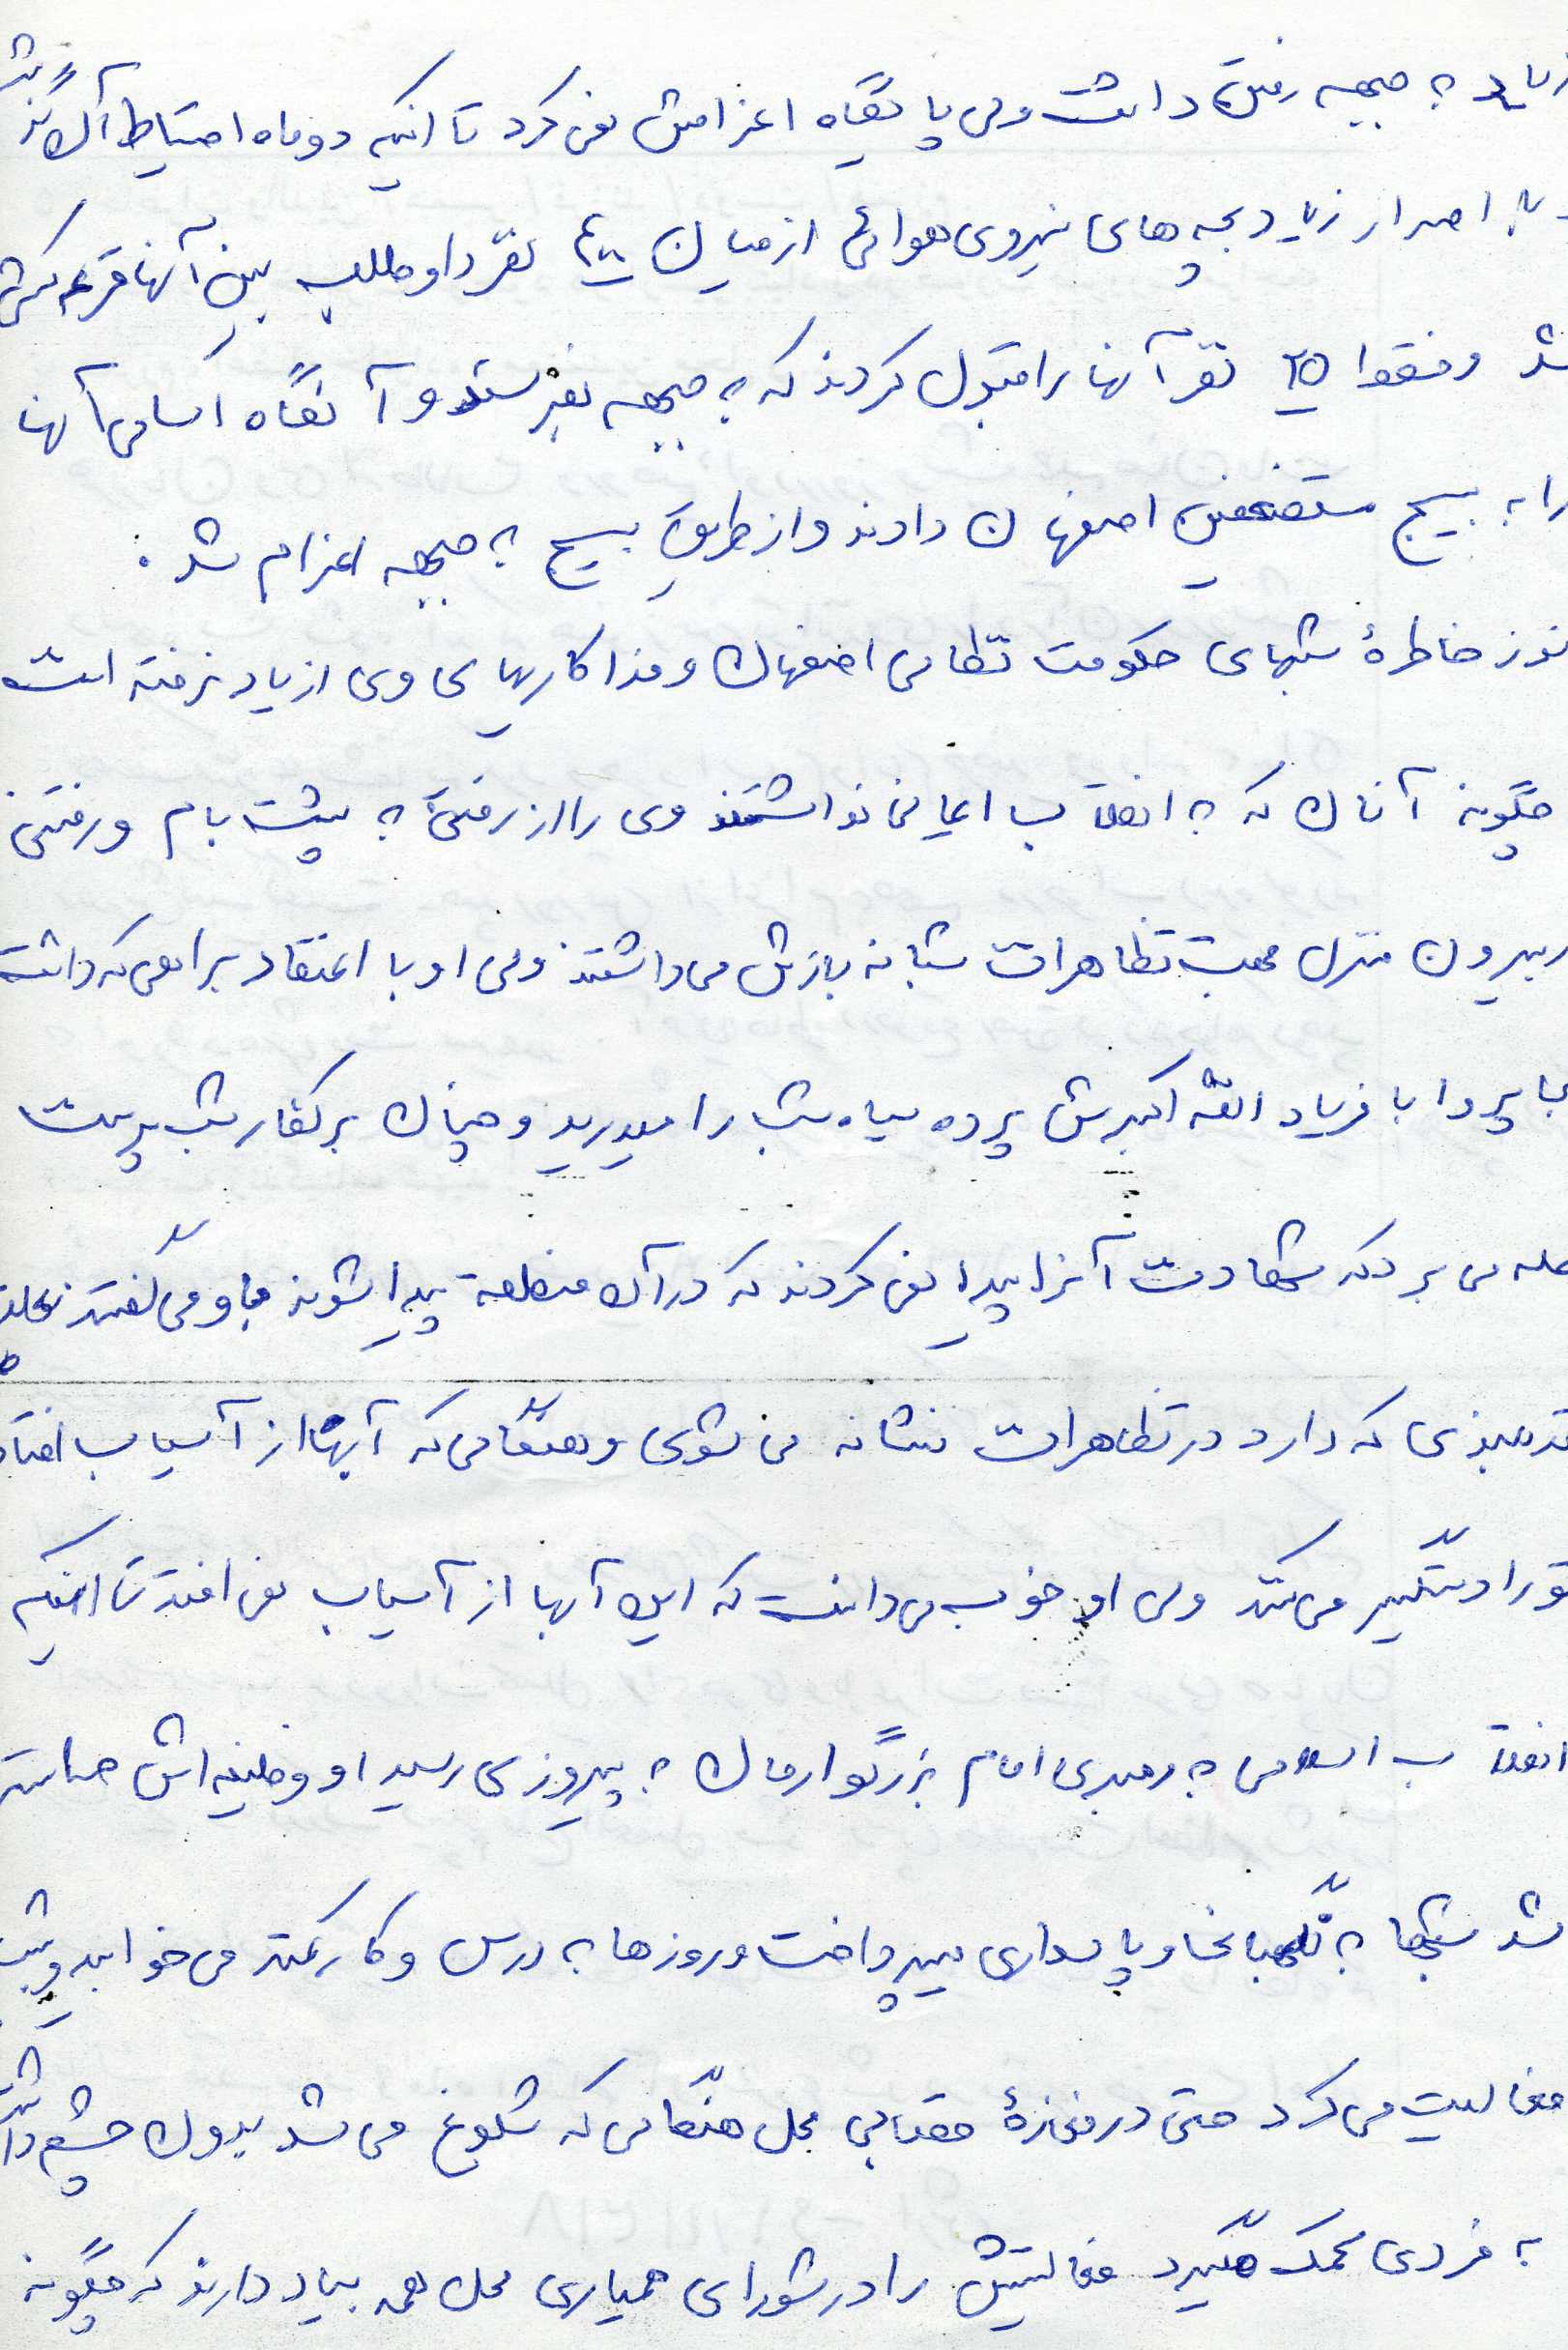 زیاد به جبهه رفتن داشت ولی پایگاه اعزامش نمی کرد تا اینکه دو ماه احتیاط آن گذشت
با اصرار زیاد بچه های نیروی هوائی از میان نفر داوطلب بین آنها قرعه کشی
شد و فقط ۲۵ نفر آنها را قبول کردند که به جبهه بفرستند و آنگاه اسامی آنها
را به بسیج مستضعفین اصفهان دادند و از طریق بسیج به جبهه اعزام شد.
خاطرهٔ شبهای حکومت نظامی اصفهان و فداکاریهای وی از یاد نرفته است
چگونه آنان که به انقلاب ایمانی نداشتند وی را از رفتن به پشت بام و رفتن
بیرون منزل جهت تظاهرات شبانه بازش می داشتند ولی او با اعتقاد براهی که داشت
بی پروا با فریاد الله اکبرش پرده سیاه شب را میدرید و چنان بر کفار شب پرست
حمله می برد که شهادت آنرا پیدا نمی کردند که در آن منطقه پیدا شوند باو می گفتند
قد بلندی که دارد در تظاهرات نشانه می شوی و هنگامی که آبها از آسیاب افتاد
تو را دستگیر می کنند ولی او خوب می دانست که این آبها از آسیاب نمی افتد تا اینکه
انقلاب اسلامی به رهبری امام بزرگوارمان به پیروزی رسید او وظیفه اش
شد شبها به نگهبانی و پاسداری میپرداخت و روزها به درس و کار کمتر می خوابید و بیشتر
فعالیت می کرد حتی در مغازهٔ قصابی محل هنگامی که شلوغ می شد بدون چشم داشت
به فردی کمک میکرد فعالیتش را در شورای همیاری محل همه بیاد دارند که چگونه